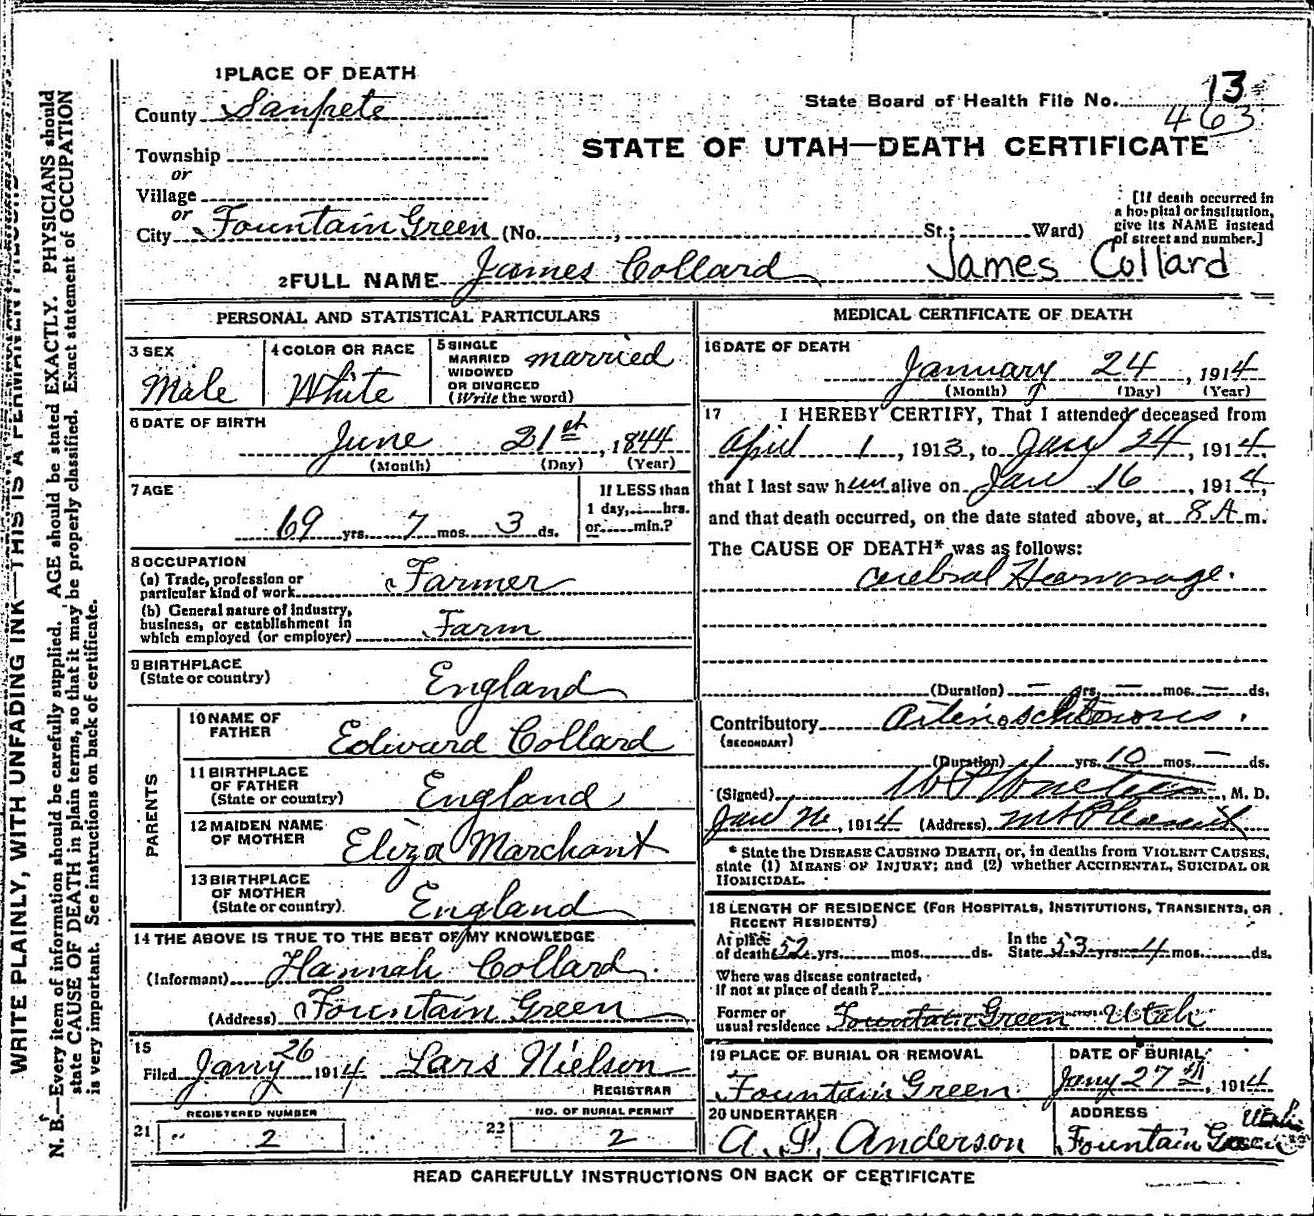 1 PLACE OF DEATH
County Sanpete
State Board of Health File No. 13
463
Township
or
Village
or
City Fountain Green (No. , St.; Ward)
STATE OF UTAH—DEATH CERTIFICATE
[If death occurred in
a hospital or institution,
give its NAME instead
of street and number.]
2 FULL NAME James Collard James Collard
PERSONAL AND STATISTICAL PARTICULARS
3 SEX
Male
4 COLOR OR RACE
White
5 SINGLE
MARRIED
WIDOWED
OR DIVORCED
(Write the word)
married
6 DATE OF BIRTH
June 21st, 1844
(Month) (Day) (Year)
7 AGE
69 yrs. 7 mos. 3 ds.
If LESS than
1 day, hrs.
or min.?
8 OCCUPATION
(a) Trade, profession or
particular kind of work Farmer
(b) General nature of industry,
business, or establishment in
which employed (or employer) Farm
9 BIRTHPLACE
(State or country)
England
PARENTS
10 NAME OF
FATHER
Edward Collard
11 BIRTHPLACE
OF FATHER
(State or country)
England
12 MAIDEN NAME
OF MOTHER
Eliza Marchant
13 BIRTHPLACE
OF MOTHER
(State or country)
England
14 THE ABOVE IS TRUE TO THE BEST OF MY KNOWLEDGE
(Informant) Hannah Collard
(Address) Fountain Green
15
Filed Jany 26 1914 Lars Nielson
REGISTRAR
REGISTERED NUMBER
21 2
NO. OF BURIAL PERMIT
22 2
MEDICAL CERTIFICATE OF DEATH
16 DATE OF DEATH
January 24, 1914
(Month) (Day) (Year)
17 I HEREBY CERTIFY, That I attended deceased from
April 1, 1913, to Jany 24, 1914,
that I last saw him alive on Jan 16, 1914,
and that death occurred, on the date stated above, at 8 A m.
The CAUSE OF DEATH* was as follows:
Cerebral Hemorage.
(Duration) — yrs. — mos. — ds.
Contributory
(SECONDARY)
(Duration) yrs. 10 mos. — ds.
(Signed) , M. D.
Jan 26, 1914 (Address) Mt Pleasant
* State the DISEASE CAUSING DEATH, or, in deaths from VIOLENT CAUSES,
state (1) MEANS OF INJURY; and (2) whether ACCIDENTAL, SUICIDAL OR
HOMICIDAL.
18 LENGTH OF RESIDENCE (FOR HOSPITALS, INSTITUTIONS, TRANSIENTS, OR
RECENT RESIDENTS)
At place
of death 52 yrs. mos. ds.
In the
State 53 yrs. 4 mos. ds.
Where was disease contracted,
If not at place of death?
Former or
usual residence Fountain Green Utah
19 PLACE OF BURIAL OR REMOVAL
Fountain Green
DATE OF BURIAL
Jany 27th, 1914
20 UNDERTAKER
A. P. Anderson
ADDRESS
Fountain Green
READ CAREFULLY INSTRUCTIONS ON BACK OF CERTIFICATE
WRITE PLAINLY, WITH UNFADING INK—THIS IS A PERMANENT RECORD
N. B.—Every item of information should be carefully supplied. AGE should be stated EXACTLY. PHYSICIANS should
state CAUSE OF DEATH in plain terms, so that it may be properly classified. Exact statement of OCCUPATION
is very important. See instructions on back of certificate.